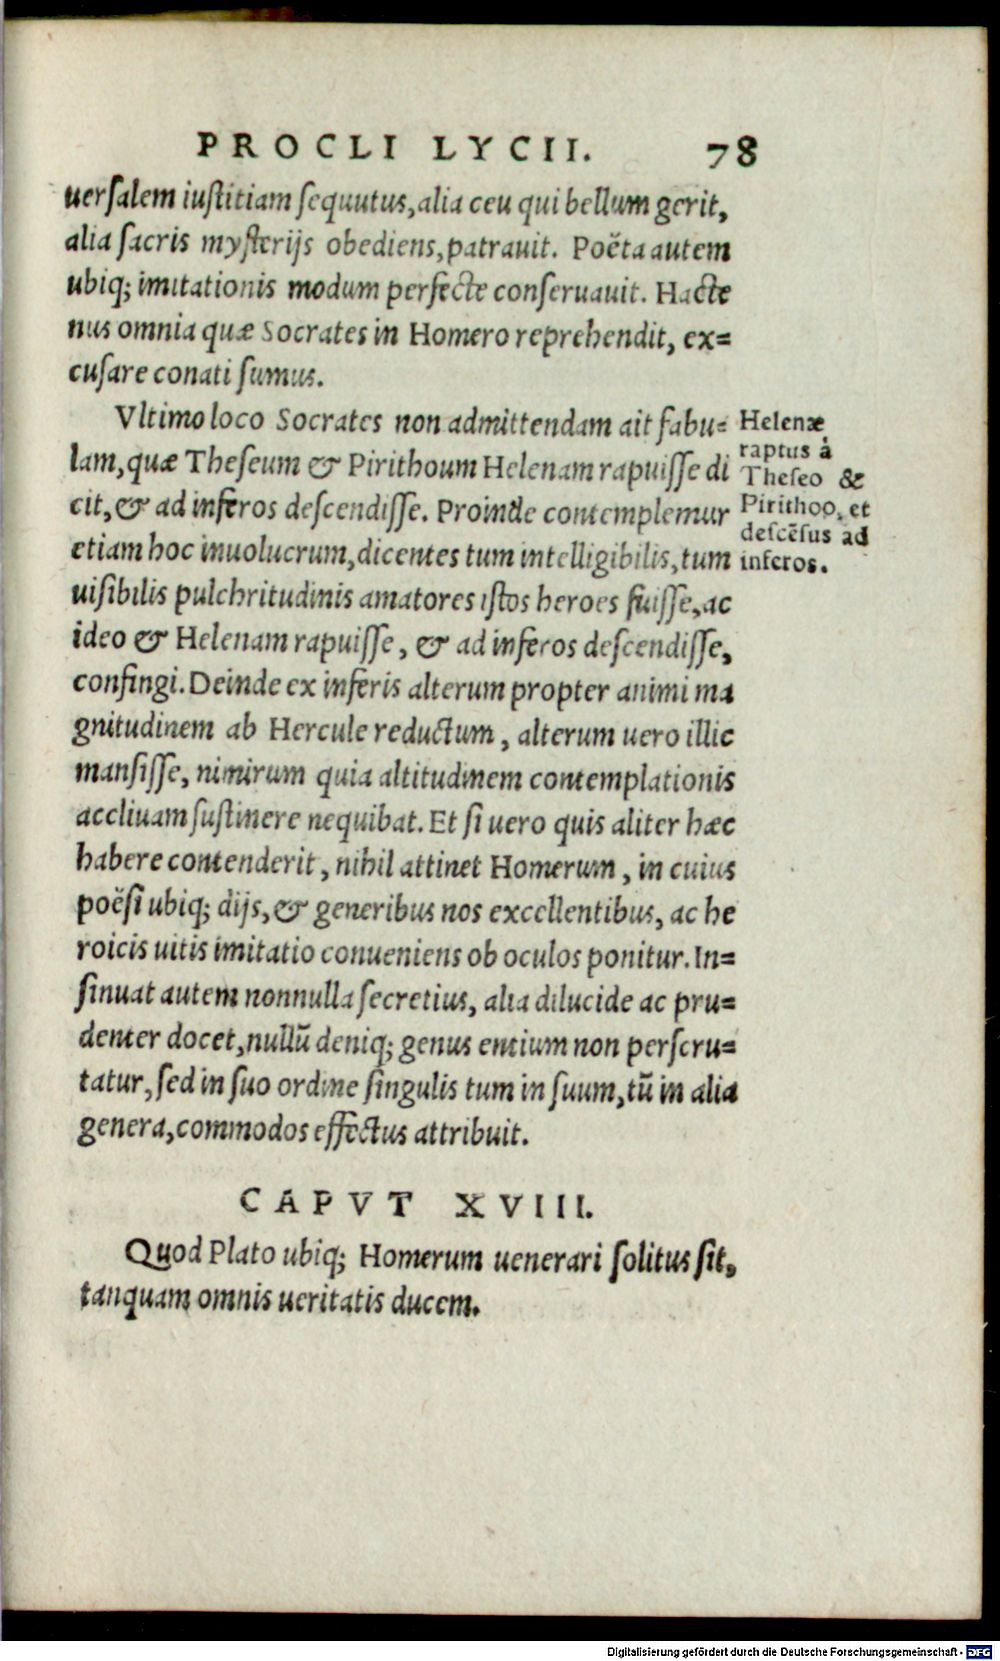 PROCLI LYCII. 78
uersalem iustitiam sequutus, alia ceu qui bellum gerit,
alia sacris mysterijs obediens, patrauit. Poëta autem
ubiq; imitationis modum perfecte conseruauit. Hacte
nus omnia quæ Socrates in Homero reprehendit, ex=
cusare conati sumus.
Vltimo loco Socrates non admittendam ait fabu=
lam, quæ Theseum & Pirithoum Helenam rapuisse di
cit, & ad inferos descendisse. Proinde contemplemur
etiam hoc inuolucrum, dicentes tum intelligibilis, tum
uisibilis pulchritudinis amatores istos heroes fuisse, ac
ideo & Helenam rapuisse, & ad inferos descendisse,
confingi. Deinde ex inferis alterum propter animi ma
gnitudinem ab Hercule reductum, alterum uero illic
mansisse, nimirum quia altitudinem contemplationis
accliuam sustinere nequibat. Et si uero quis aliter hæc
habere contenderit, nihil attinet Homerum, in cuius
poësi ubiq; dijs, & generibus nos excellentibus, ac he
roicis uitis imitatio conueniens ob oculos ponitur. In=
sinuat autem nonnulla secretius, alia dilucide ac pru=
denter docet, nullū deniq; genus entium non perscru=
tatur, sed in suo ordine singulis tum in suum, tū in alia
genera, commodos effectus attribuit.
Helenæ
raptus à
Theseo &
Pirithoo, et
descēsus ad
inferos.
CAPVT XVIII.
Quod Plato ubiq; Homerum uenerari solitus sit,
tanquam omnis ueritatis ducem.
Digitalisierung gefördert durch die Deutsche Forschungsgemeinschaft - DFG